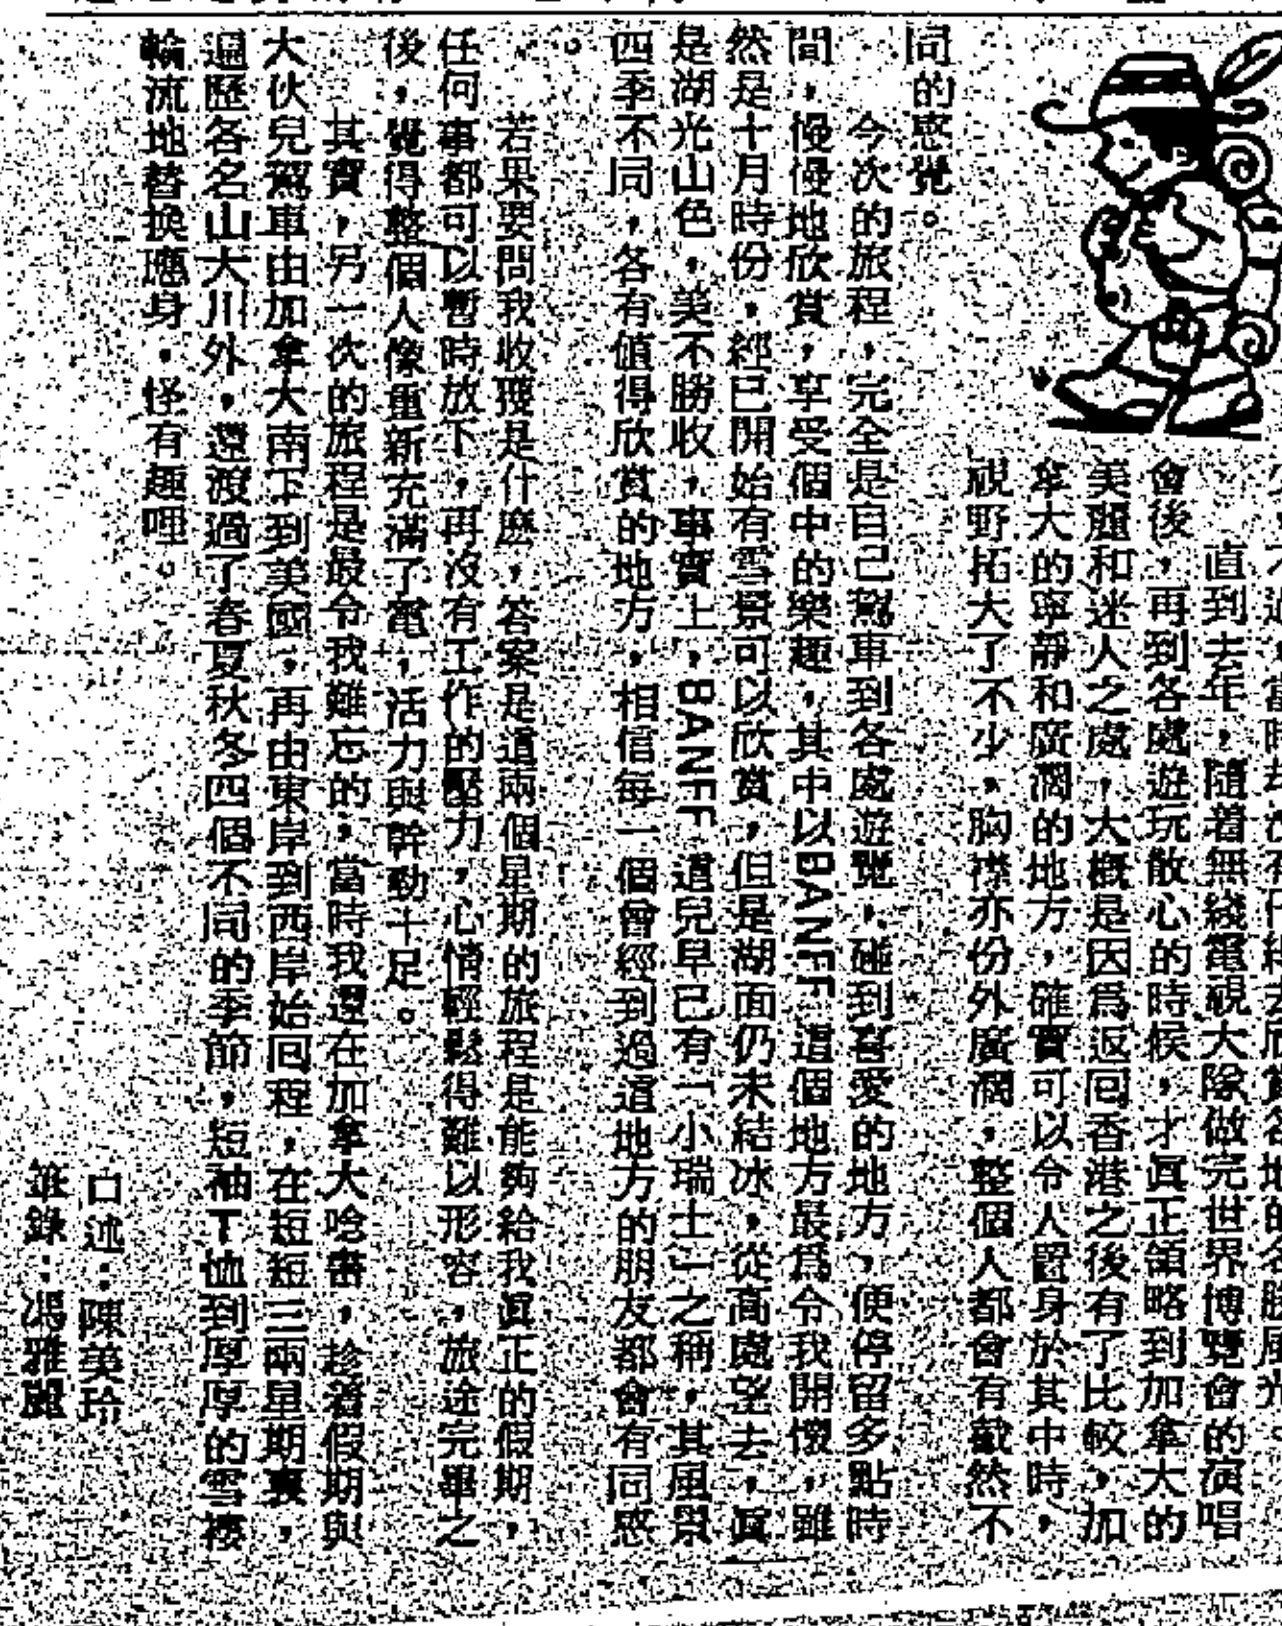 直到去年，隨着無綫電視大隊做完世界博覽會的演唱
會後，再到各處遊玩散心的時候，才眞正領略到加拿大的
美麗和迷人之處，大概是因爲返回香港之後有了比較，加
拿大的寧靜和廣濶的地方，確實可以令人置身於其中時，
視野拓大了不少，胸襟亦份外廣濶，整個人都會有截然不
同的感覺。
今次的旅程，完全是自己駕車到各處遊覽，碰到喜愛的地方，便停留多點時
間，慢慢地欣賞，享受個中的樂趣，其中以BANFF這個地方最爲令我開懷，雖
然是十月時份，經已開始有雪景可以欣賞，但是湖面仍未結冰，從高處望去，眞
是湖光山色，美不勝收，事實上，BANFF這兒早已有「小瑞士」之稱，其風景
四季不同，各有値得欣賞的地方，相信每一個曾經到過這地方的朋友都會有同感
。
若果要問我收獲是什麽，答案是這兩個星期的旅程是能夠給我眞正的假期，
任何事都可以暫時放下，再沒有工作的壓力，心情輕鬆得難以形容，旅途完畢之
後，覺得整個人像重新充滿了電，活力與幹勁十足。
其實，另一次的旅程是最令我難忘的，當時我還在加拿大唸書，趁着假期與
大伙兒駕車由加拿大南下到美國，再由東岸到西岸始回程，在短短三兩星期裏，
遍歷各名山大川外，還渡過了春夏秋冬四個不同的季節，短袖T恤到厚厚的雪褸
輪流地替換應身，怪有趣哩。
口述：陳美玲
筆錄：馮雅麗